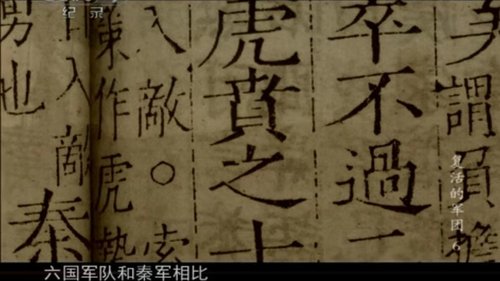 纪录
謂負擔
卒不過
虎賁之士
入敵○索
作虎勢
入敵
也
秦
复活的军团 6
六国军队和秦军相比